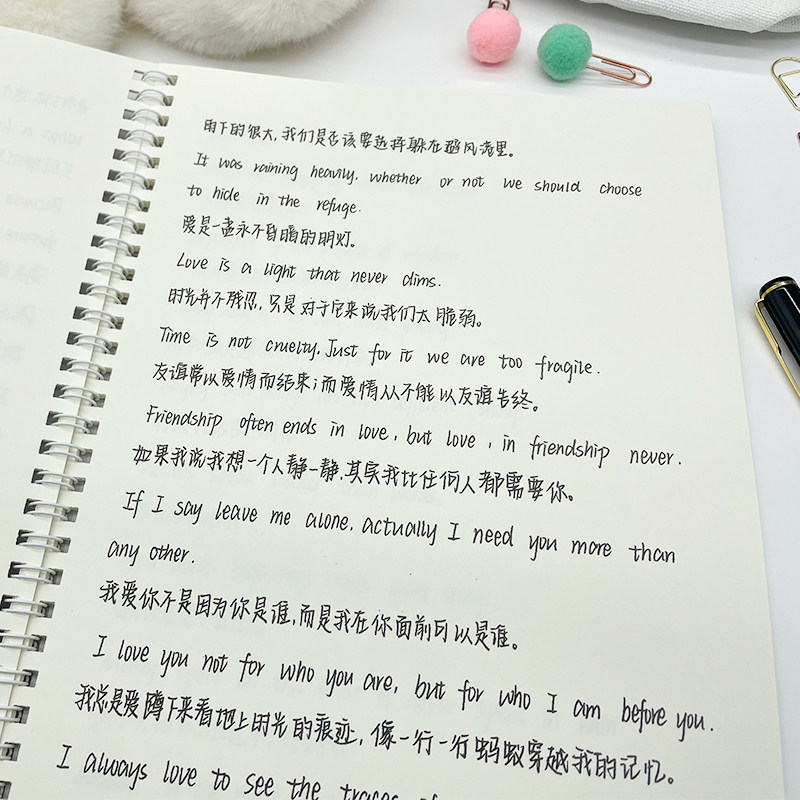 雨下的很大,我们是否该要选择躲在避风港里。
It was raining heavily. whether or not we should choose
to hide in the refuge.
爱是一盏永不昏暗的明灯。
Love is a light that never dims.
时光并不残忍,只是对于它来说我们太脆弱。
Time is not cruelty. Just for it we are too fragile.
友谊常以爱情而结束;而爱情从不能以友谊告终。
Friendship often ends in love, but love , in friendship never.
如果我说我想一个人静一静,其实我比任何人都需要你。
If I say leave me alone. actually I need you more than
any other.
我爱你不是因为你是谁,而是我在你面前可以是谁。
I love you not for who you are, but for who I am before you.
我总是爱蹲下来看地上时光的痕迹, 像一行一行蚂蚁穿越我的记忆。
I always love to see the traces of